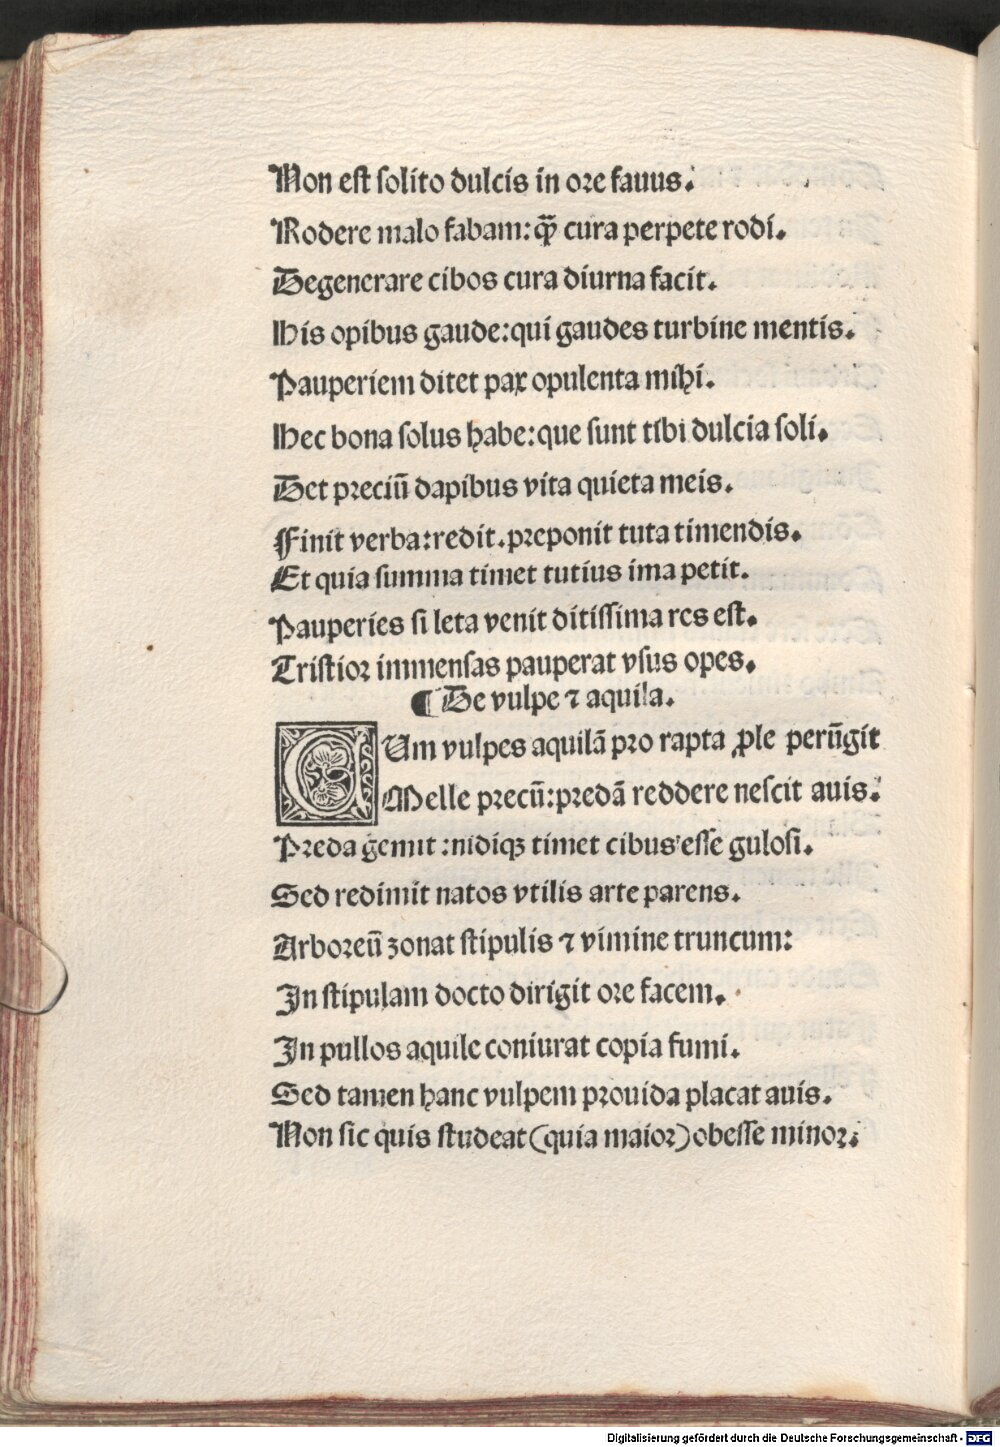 Non est solito dulcis in ore fauus.
Rodere malo fabam: qȝ̄ cura perpete rodi.
Degenerare cibos cura diurna facit.
His opibus gaude: qui gaudes turbine mentis.
Pauperiem ditet pax opulenta mihi.
Hec bona solus habe: que sunt tibi dulcia soli.
Det preciū dapibus vita quieta meis.
Finit verba: redit. preponit tuta timendis.
Et quia summa timet tutius ima petit.
Pauperies si leta venit ditissima res est.
Tristior immensas pauperat vsus opes.
¶ De vulpe ⁊ aquila.
CUm vulpes aquilā pro rapta ꝓle perūgit
Melle precū: predā reddere nescit auis.
Preda gemit: nidiqȝ timet cibus esse gulosi.
Sed redimit natos vtilis arte parens.
Arboreū zonat stipulis ⁊ vimine truncum:
In stipulam docto dirigit ore facem.
In pullos aquile coniurat copia fumi.
Sed tamen hanc vulpem prouida placat auis.
Non sic quis studeat (quia maior) obesse minor.
Digitalisierung gefördert durch die Deutsche Forschungsgemeinschaft - DFG